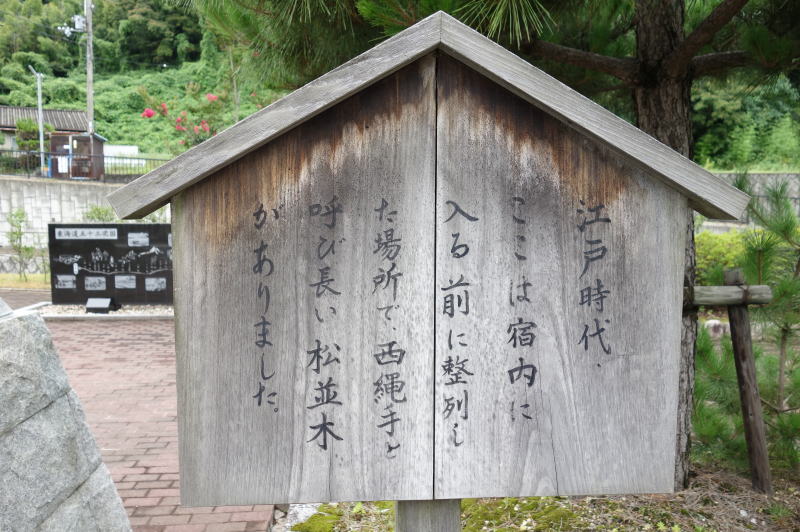 江戸時代、
ここは宿内に
入る前に整列し
た場所で、西縄手と
呼び長い松並木
がありました。
東海道五十三次図